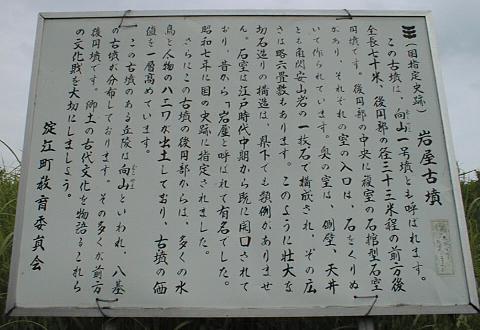 (国指定史跡) 岩屋古墳
この古墳は、向山一号墳とも呼ばれます。
全長七十米、後円部の径三十三米程の前方後
円墳です。後円部の中央に複室の石棺型石室
があり、それぞれの室の入口は、石をくりぬ
いて作られています。奥の室は、側壁、天井
とも角閃安山岩の一枚石で構成され、その広
さは略六畳敷もあります。このように壮大な
切石造りの構造は、県下でも類例がありませ
ん。石室は江戸時代中期から既に開口されて
おり、昔から「岩屋」と呼ばれて有名でした。
昭和七年に国の史跡に指定されました。
さらにこの古墳の後円部からは、多くの水
鳥と人物のハニワが出土しており、古墳の価
値を一層高めています。
この古墳のある丘陵は向山といわれ、八基
の古墳が分布しております。その多くが前方
後円墳です。郷土の古代文化を物語るこれら
の文化財を大切にしましょう。
淀江町教育委員会